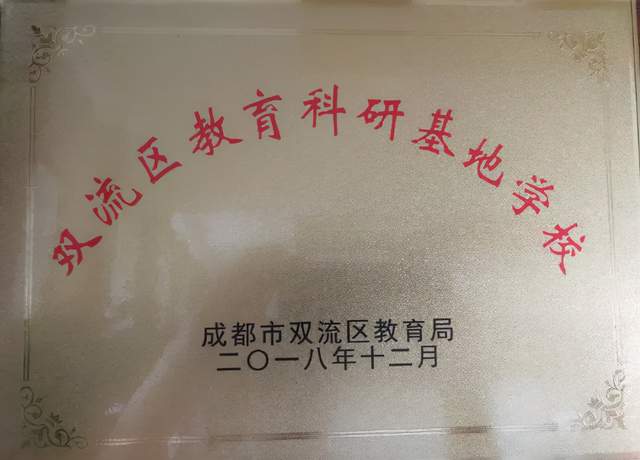 双流区教育科研基地学校
成都市双流区教育局
二〇一八年十二月